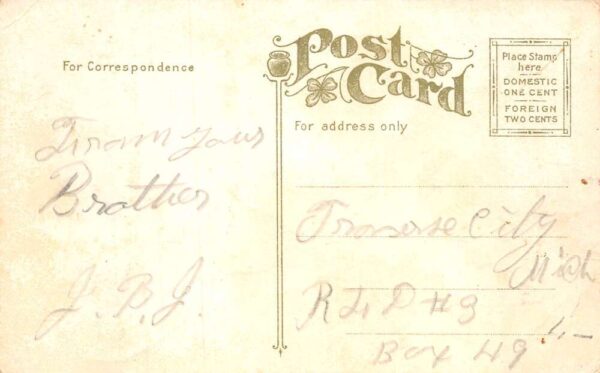 For Correspondence
Post
Card
For address only
Place Stamp
here
DOMESTIC
ONE CENT
FOREIGN
TWO CENTS
From your
Brother
J. B. J.
Traverse City
Mich
R F D #3
Box 49